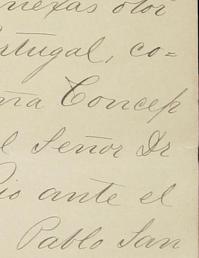 nexas otor
rtugal, co=
ña Concep
l Señor Dr
Rio ante el
Pablo San